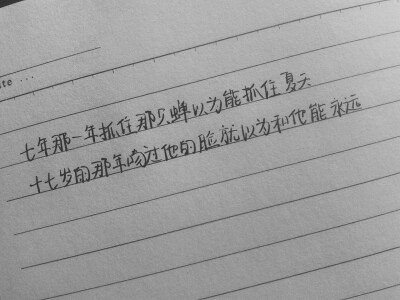 te ...
七年那一年抓住那只蝉以为能抓住夏天
十七岁的那年吻过他的脸就以为和他能永远